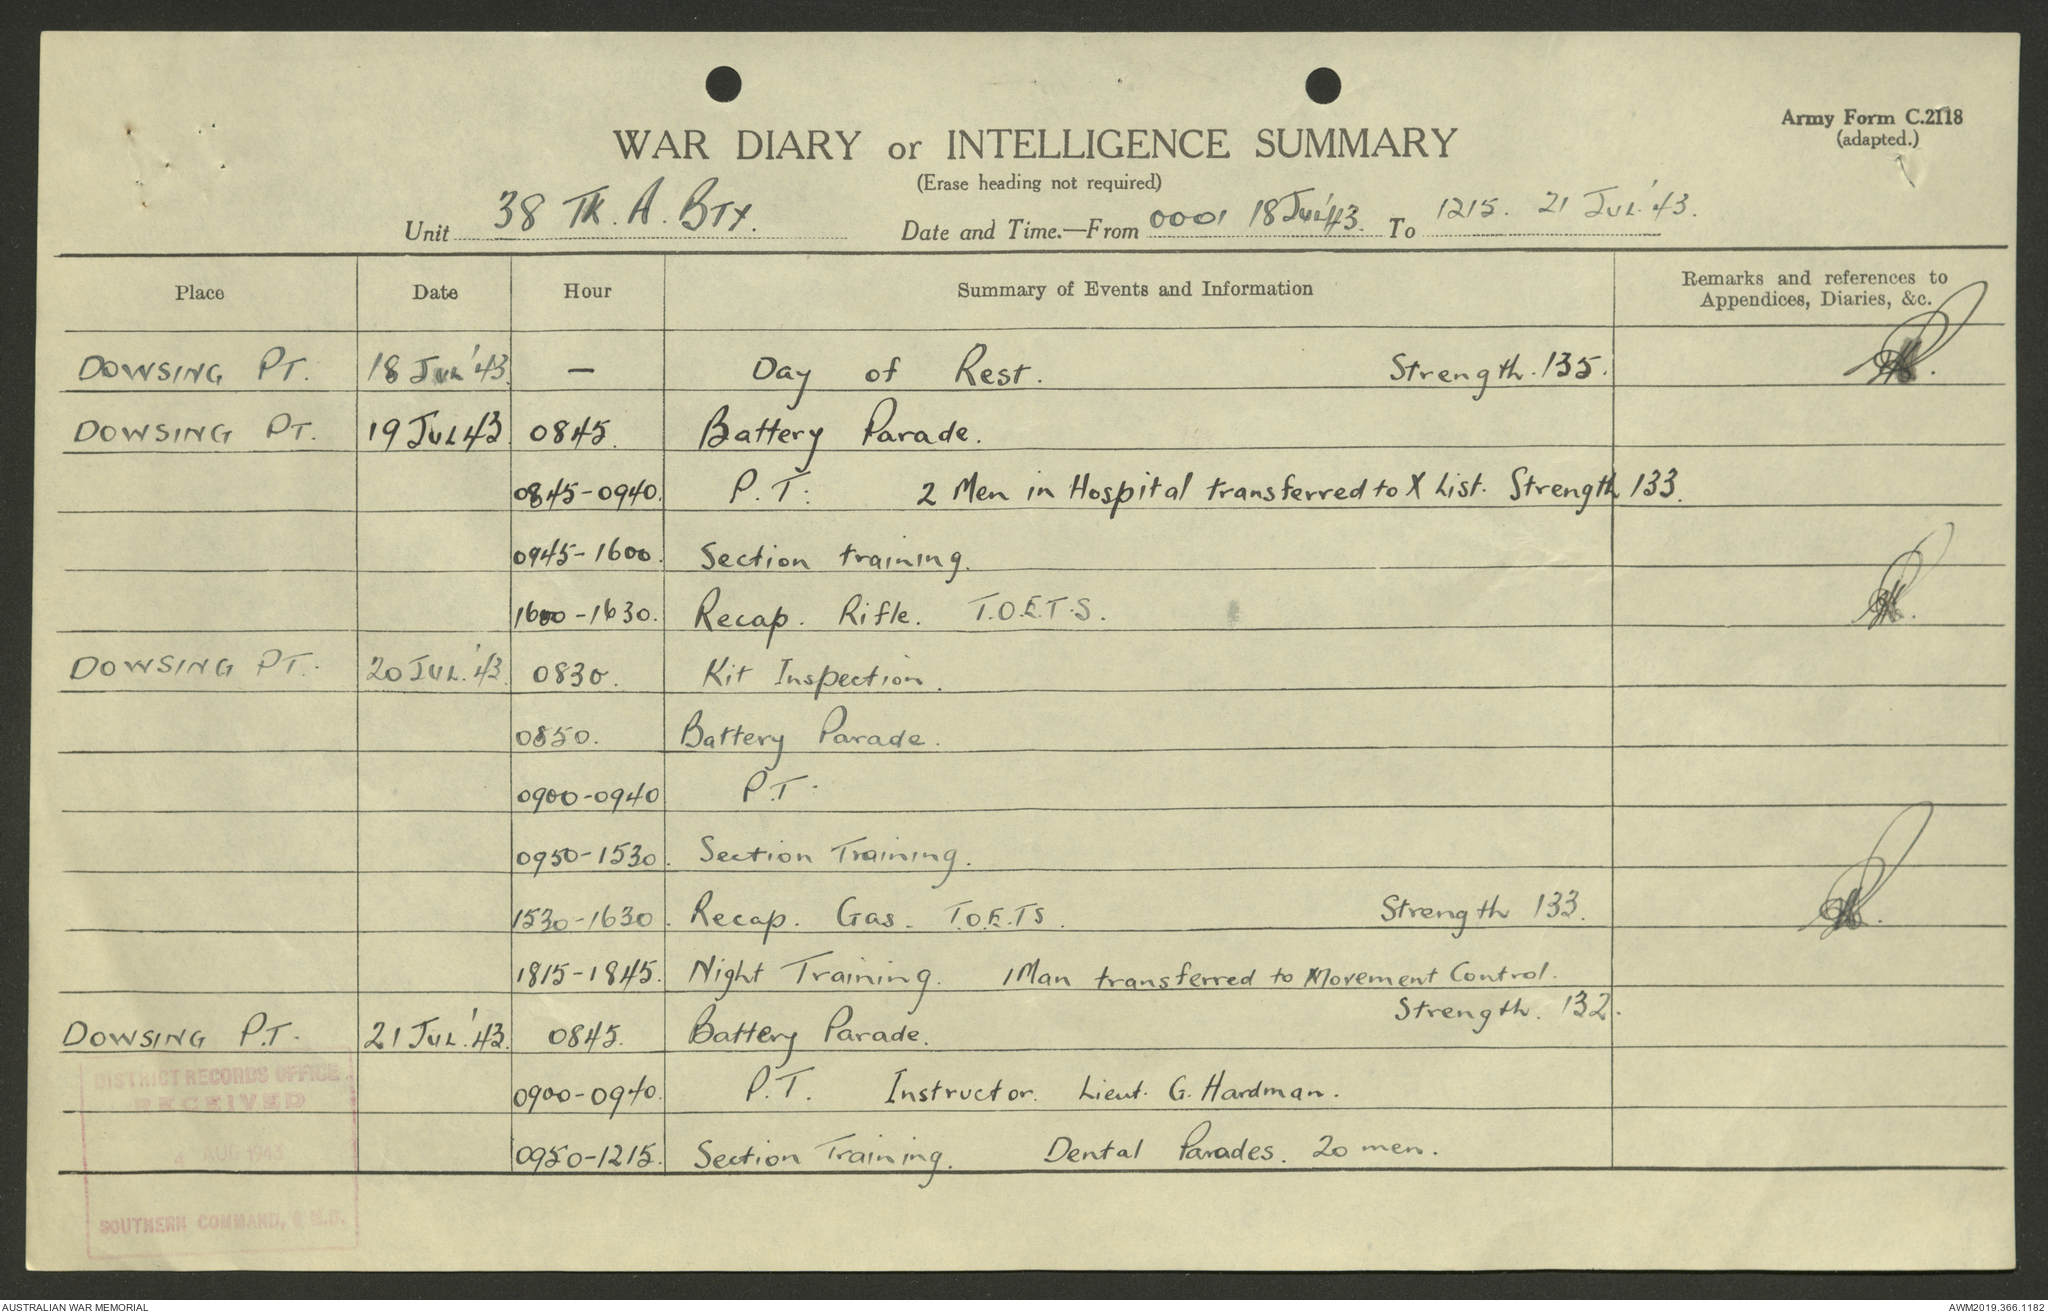 Army Form C.2118
(adapted.)
WAR DIARY or INTELLIGENCE SUMMARY
(Erase heading not required)
Unit 38 TK. A. BTY. Date and Time.—From 0001 18 JUL'43. To 1215. 21 JUL.'43.
Place Date Hour Summary of Events and Information Remarks and references to Appendices, Diaries, &c.
DOWSING PT. 18 JUL'43. — Day of Rest. Strength. 135.
DOWSING PT. 19 JUL 43. 0845. Battery Parade.
0845-0940. P.T. 2 Men in Hospital transferred to X List. Strength 133.
0945-1600. Section training.
1600-1630. Recap. Rifle. T.O.E.T.S.
DOWSING PT. 20 JUL.'43. 0830. Kit Inspection.
0850. Battery Parade.
0900-0940 P.T.
0950-1530. Section Training.
1530-1630. Recap. Gas. T.O.E.TS. Strength 133.
1815-1845. Night Training. 1 Man transferred to Movement Control.
Strength. 132.
DOWSING P.T. 21 JUL.'43. 0845. Battery Parade.
0900-0940. P.T. Instructor. Lieut. G. Hardman.
0950-1215. Section Training. Dental Parades. 20 men.
DISTRICT RECORDS OFFICE
RECEIVED
4 AUG 1943
SOUTHERN COMMAND,
AUSTRALIAN WAR MEMORIAL AWM2019.366.1182